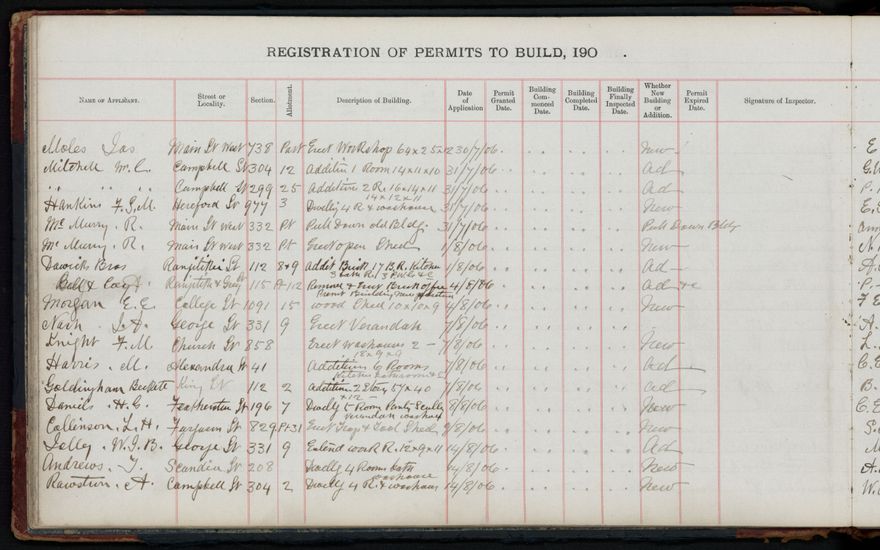 REGISTRATION OF PERMITS TO BUILD, 190 .
NAME OF APPLICANT. Street or Locality. Section. Allotment. Description of Building. Date of Application Permit Granted Date. Building Commenced Date. Building Completed Date. Building Finally Inspected Date. Whether New Building or Addition. Permit Expired Date. Signature of Inspector.
Moles Jas Main St West 738 Part Erect Workshop 30/7/06 New
Mitchell M. C. Campbell St 304 12 Addition 1 Room 14 x 11 x 10 31/7/06 Ad
" " " Campbell St 299 25 Addition 2 R. 16 x 14 x 11 31/7/06 Ad
14 x 12 x 11
Hankins F. G. M. Hereford St 977 3 Dwelly 4 R & washouse 31/7/06 New
Mc Murry. R. Main St West 332 Pt Pull Down old Bldg. 31/7/06 Pull Down Bldg
Mc Murry. R. Main St West 332 Pt Erect open Shed 1/8/06 New
Dawick Bros Rangitikei St 112 8 & 9 Addit Brick 17 B.R. Kitchen 1/8/06 Ad
3 Bath R.
Ball & 115 Remove & Erect Brick office 4/8/06 Ad
Morgan E. E. College St 1091 15 Wood Shed 10 x 10 x 9 4/8/06 New
Nash J. A. George St 331 9 Erect Verandah 7/8/06
Knight F. M. Church St 858 Erect washouses 2 7/8/06 New
18 x 9 x 9
Harris. M. Alexandra St 41 Addition 6 Rooms 7/8/06 Ad
Goldingham Beckett King St 112 2 Addition 2 Story 57 x 40 7/8/06 Ad
x 12
Daniels. H. G. Featherston St 196 7 Dwelly 5 Room Pantry Scully 8/8/06 New
Verandah washouse
Collinson. L. H. Ferguson St 829 Pt 31 Erect Trap & Tool Shed 9/8/06 New
W. G. B. George St 331 9 Extend work R. 12 x 9 x 11 14/8/06 Ad
Andrews. T. Scandia St 208 Dwelly 4 Rooms bath 14/8/06 New
washouse
Rawstron. A. Campbell St 304 2 Dwelly 4 R. & washouse 14/8/06 New